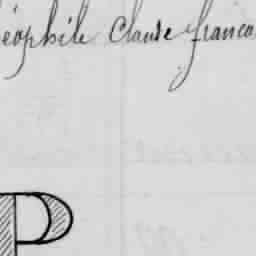 éophile Claude franco
P